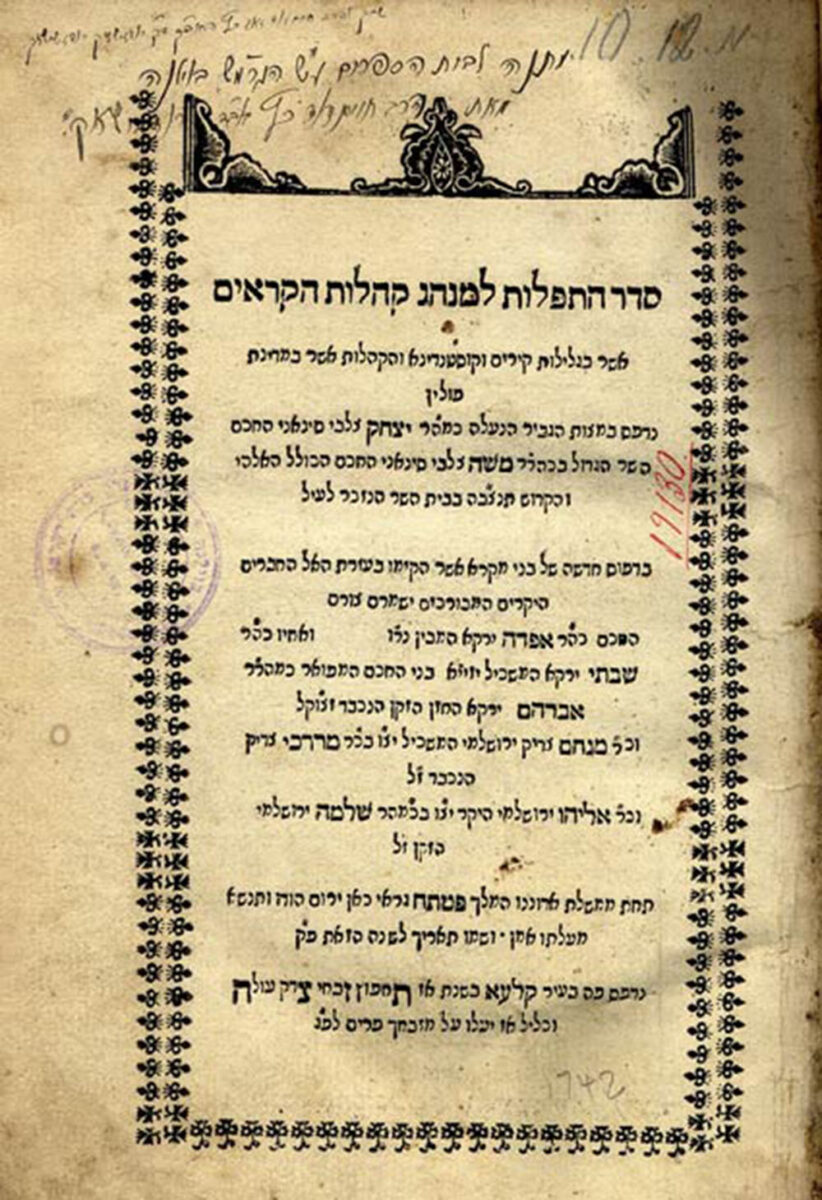 10 12
מתנה לבית הספרים ע״ש הגר״מש באאנה
מאת הרב
סדר התפלות למנהג קהלות הקראים
אשר בגלילות קירים וקוסטנדינא והקהלות אשר במדינת
פולין
נדפס במצות הגביר הנעלה כמהר יצחק צלבי סינאני החכם
השר הגדול בכהלר משה צלבי סינאני החכם הכולל האלהי
והקדוש תנצבה בבית השר הנזכר לעיל
19130
בדפוס חדשה של בני מקרא אשר הקימו בעזרת האל החברים
היקרים המבורכים ישמרם צורם
החכם כהר אפדה ירקא המבין נרו ואחיו כהר
שבתי ירקא המשכיל יזייא בני החכם המפואר כמהלר
אברהם ירקא החזן הזקן הנכבד זצוקל
וכר מנחם צדיק ירושלמי המשכיל יצו בכר מרדכי צדיק
הנכבד זל
וכר אליהו ירושלמי היקר יצו בכמהר שלמה ירושלמי
הזקן זל
תחת ממשלת אדוננו המלך פטתח גראי כאן ירום הודו ותנשא
מעלתו אמן · ושמו תאריך לשנה הזאת פק
נדפס פה בעיר קלעא בשנת אז תחפוץ זבחי צדק עולה
וכליל אז יעלו על מזבחך פרים לפג
1742